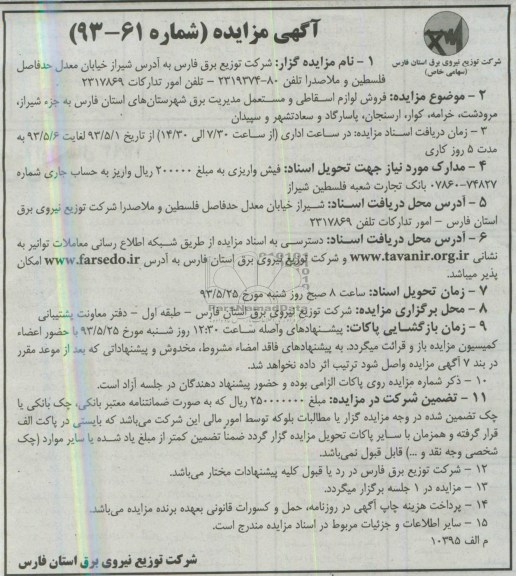 آگهی مزایده (شماره ۶۱-۹۳)
شرکت توزیع نیروی برق استان فارس
(سهامی خاص)
۱ - نام مزایده گزار: شرکت توزیع برق فارس به آدرس شیراز خیابان معدل حدفاصل
فلسطین و ملاصدرا تلفن ۸۰-۲۳۱۹۳۷۴ - تلفن امور تدارکات ۲۳۱۷۸۶۹
۲ - موضوع مزایده: فروش لوازم اسقاطی و مستعمل مدیریت برق شهرستان‌های استان فارس به جزء شیراز،
مرودشت، خرامه، کوار، ارسنجان، پاسارگاد و سعادتشهر و سپیدان
۳ - زمان دریافت اسناد مزایده: در ساعت اداری (از ساعت ۷/۳۰ الی ۱۴/۳۰) از تاریخ ۹۳/۵/۱ لغایت ۹۳/۵/۶ به
مدت ۵ روز کاری
۴ - مدارک مورد نیاز جهت تحویل اسناد: فیش واریزی به مبلغ ۲۰۰۰۰۰ ریال واریز به حساب جاری شماره
۰۷۸۶۰-۷۴۸۲۷ بانک تجارت شعبه فلسطین شیراز
۵ - آدرس محل دریافت اسناد: شیراز خیابان معدل حدفاصل فلسطین و ملاصدرا شرکت توزیع نیروی برق
استان فارس - امور تدارکات تلفن ۲۳۱۷۸۶۹
۶ - آدرس محل دریافت اسناد: دسترسی به اسناد مزایده از طریق شبکه اطلاع رسانی معاملات توانیر به
نشانی www.tavanir.org.ir و شرکت توزیع نیروی برق استان فارس به آدرس www.farsedo.ir امکان
پذیر میباشد.
۷ - زمان تحویل اسناد: ساعت ۸ صبح روز شنبه مورخ ۹۳/۵/۲۵
۸ - محل برگزاری مزایده: شرکت توزیع نیروی برق استان فارس - طبقه اول - دفتر معاونت پشتیبانی
۹ - زمان بازگشایی پاکات: پیشنهادهای واصله ساعت ۱۲:۳۰ روز شنبه مورخ ۹۳/۵/۲۵ با حضور اعضاء
کمیسیون مزایده باز و قرائت میگردد. به پیشنهادهای فاقد امضاء مشروط، مخدوش و پیشنهاداتی که بعد از موعد مقرر
در بند ۷ آگهی مزایده واصل شود ترتیب اثر داده نخواهد شد.
۱۰ - ذکر شماره مزایده روی پاکات الزامی بوده و حضور پیشنهاد دهندگان در جلسه آزاد است.
۱۱ - تضمین شرکت در مزایده: مبلغ ۲۵۰۰۰۰۰۰ ریال که به صورت ضمانتنامه معتبر بانکی، چک بانکی یا
چک تضمین شده در وجه مزایده گزار یا مطالبات بلوکه توسط امور مالی این شرکت می‌باشد که بایستی در پاکت الف
قرار گرفته و همزمان با سایر پاکات تحویل مزایده گزار گردد ضمناً تضمین کمتر از مبلغ یاد شده یا سایر موارد (چک
شخصی وجه نقد و ...) قابل قبول نمی‌باشد.
۱۲ - شرکت توزیع برق فارس در رد یا قبول کلیه پیشنهادات مختار می‌باشد.
۱۳ - مزایده در ۱ جلسه برگزار میگردد.
۱۴ - پرداخت هزینه چاپ آگهی در روزنامه، حمل و کسورات قانونی بعهده برنده مزایده می‌باشد.
۱۵ - سایر اطلاعات و جزئیات مربوط در اسناد مزایده مندرج است.
م الف ۱۰۳۹۵
شرکت توزیع نیروی برق استان فارس